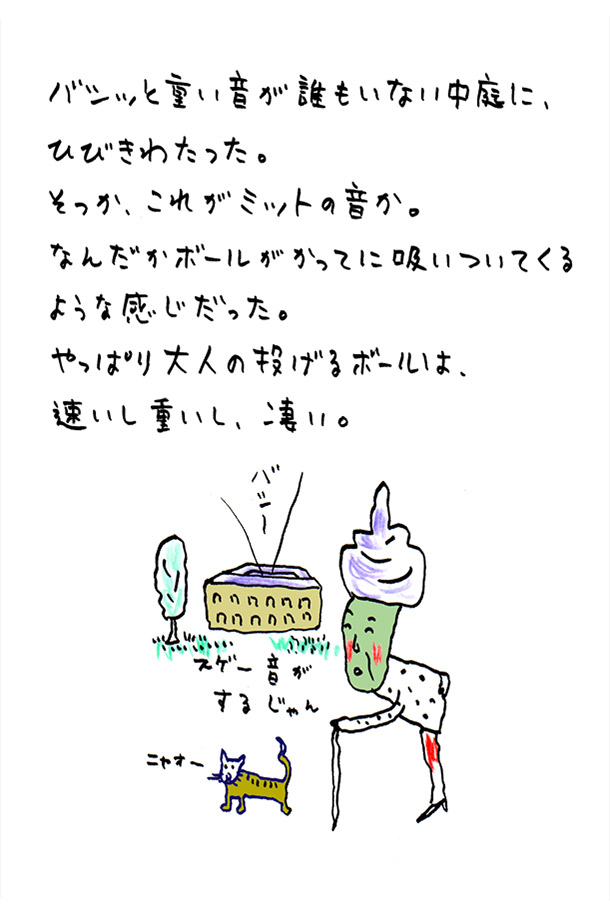 バシッと重い音が誰もいない中庭に、
ひびきわたった。
そっか、これがミットの音か。
なんだかボールがかってに吸いついてくる
ような感じだった。
やっぱり大人の投げるボールは、
速いし重いし、凄い。
バシー
スゲー音が
するじゃん
ニャオー